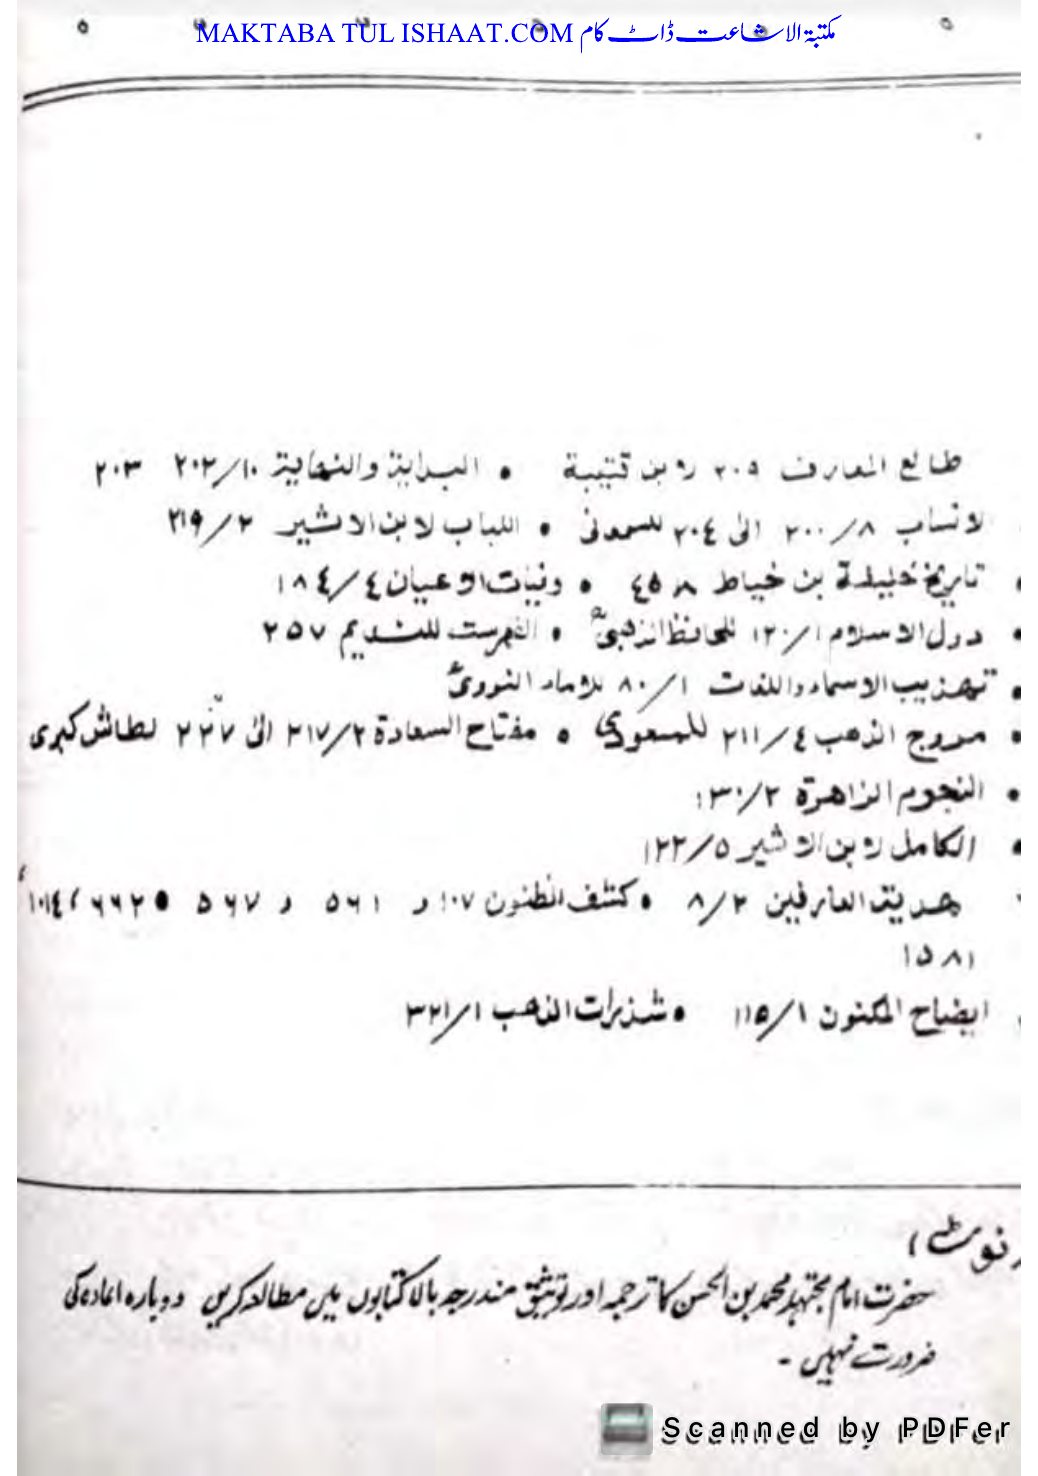 MAKTABA TUL ISHAAT.COM مکتبۃ الاشاعت ڈاٹ کام
طالع المعارف ۲۰۹ لابن قتيبة • البداية والنهاية ۲۰۲/۱۰ ۲۰۳
لانساب ۲۰۰/۸ الى ۲۰٤ للسمعانى • اللباب لابن الاثير ۲۱۹/۲
• تاريخ خليفة بن خياط ٤٥٨ • وفيات الاعيان ١٨٤/٤
• دول الاسلام ۱۲۰/۱ للحافظ الذهبیؒ • الفهرست للنديم ۲۵۷
• تهذيب الاسماء واللغات ۸۰/۱ للامام النووىؒ
• مروج الذهب ۲۱۱/٤ للمسعودي • مفتاح السعادة ۲۱۷/۲ الى ۲۲۷ لطاش كبرى
• النجوم الزاهرة ۱۳۰/۲
• الكامل لابن الاثير ۱۲۲/۵
هدية العارفين ۸/۲ • كشف الظنون ۱۰۷ و ۵۶۱ و ۵۶۷ • ۶۶۲، ۱۰۱٤،
۱۵۸۱
ايضاح المكنون ۱۱۵/۱ • شذرات الذهب ۳۲۱/۱
نوٹ)
حضرت امام مجتہد محمد بن الحسن کا ترجمہ اور توثیق مندرجہ بالا کتابوں میں مطالعہ کریں دوبارہ اعادہ کی
ضرورت نہیں -
Scanned by PDFer